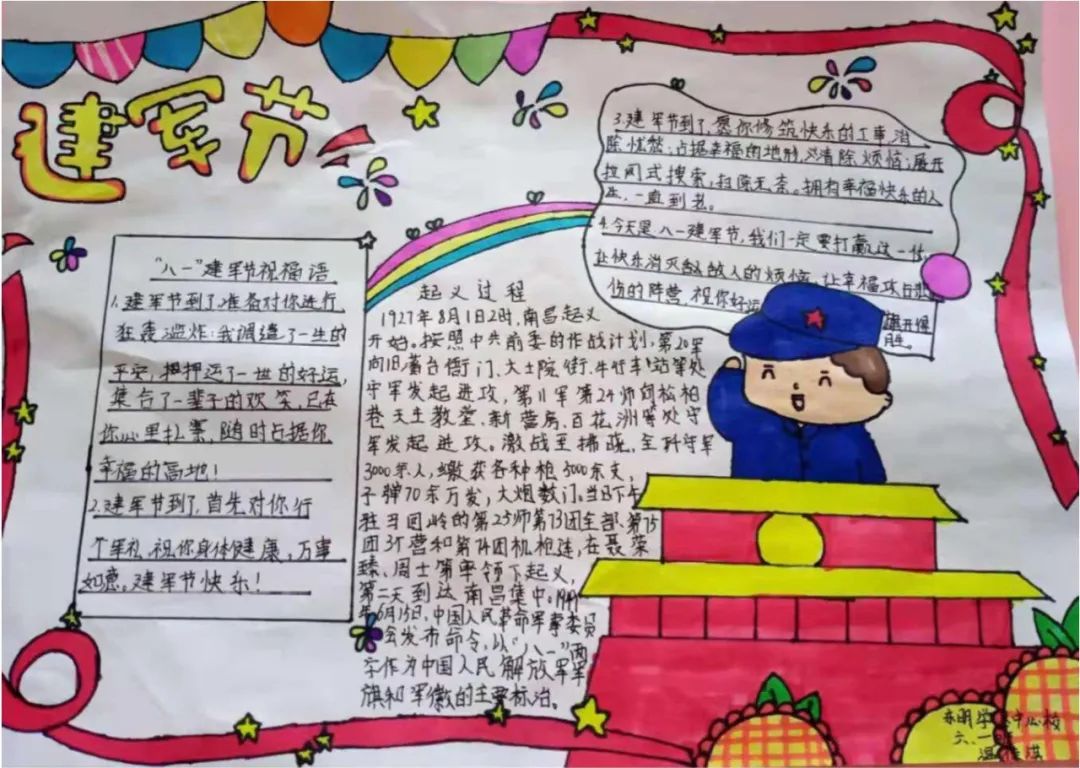 建军节
"八一"建军节祝福语
1.建军节到了,准备对你进行
狂轰滥炸:我调遣了一生的
平安,押运了一世的好运,
集合了一辈子的欢笑,已在
你心里扎寨,随时占据你
幸福的高地!
2.建军节到了,首先对你行
个军礼,祝你身体健康,万事
如意。建军节快乐!
起义过程
1927年8月1日2时,南昌起义
开始。按照中共前委的作战计划,第20军
向旧藩台衙门、大士院街、牛行车站等处
守军发起进攻,第11军第24师向松柏
巷天主教堂、新营房、百花洲等处守
军发起进攻。激战至拂晓,全歼守军
3000余人,缴获各种枪5000余支,
子弹70余万发,大炮数门。当日下午
驻马回岭的第25师第73团全部、第75
团3个营和第74团机枪连,在聂荣
臻、周士第率领下起义,
第二天到达南昌集中。1949
年6月15日,中国人民革命军事委员
会发布命令,以"八一"两
字作为中国人民解放军军
旗和军徽的主要标治。
3.建军节到了,愿你修筑快乐的工事,消
除忧愁;占据幸福的地形,清除烦恼;展开
拉网式搜索,扫除无奈。拥有幸福快乐的人
生,一直到老。
4.今天是八一建军节,我们一定要打赢这一仗,
让快乐消灭敌人的烦恼,让幸福攻占
份的阵营,祝你好运
旗开得
胜。
中心校
六、一